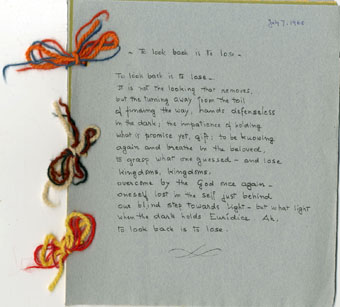 July 7. 1966
- To look back is to lose -
To look back is to lose -
It is not the looking that removes,
but the turning away from the toil
of finding the way, hands defenseless
in the dark; the impatience of holding
what is promise yet, gift; to be knowing
again and breathe in the beloved,
to grasp what one guessed - and lose
kingdoms, kingdoms.
overcome by the God once again -
oneself lost in the self just behind
our blind step towards light - but what light
when the dark holds Euridice. Ah,
to look back is to lose.